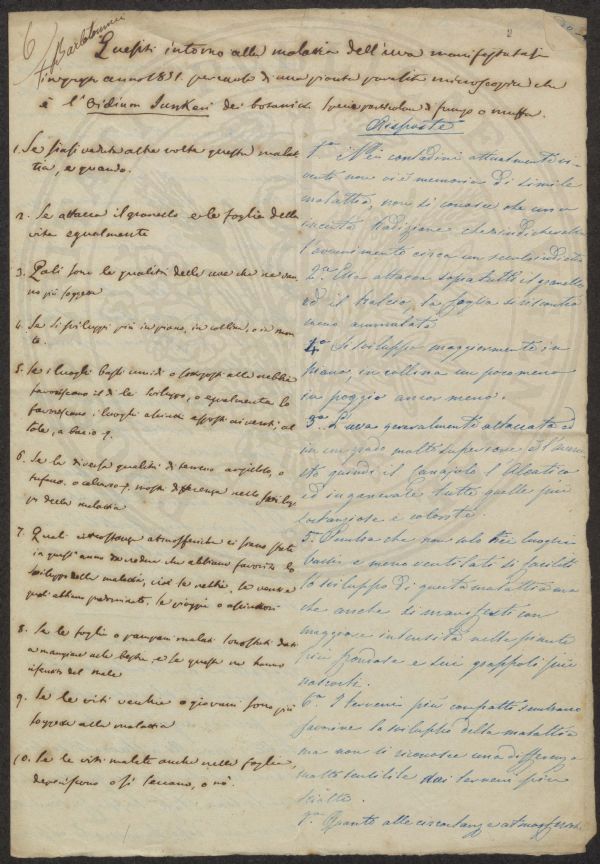 6
2
Bartolommei
Quesiti intorno alla malattia dell'uva manifestatasi
in quest'anno 1851 per causa di una pianta parasita microscopica che
è l'Oidium Tuckeri dei botanici specie particolare di fungo o muffa.
1. Se siasi veduta altra volta questa malat
tia, e quando.
2. Se attacca il granello e le foglie della
vite egualmente
3. Quali sono le qualità delle uve che ne van
no più soggette
4. Se si sviluppi più in piano, in collina, o in mon
te.
5. Se i luoghi bassi umidi o sottoposti alle nebbie
favoriscono di lo sviluppo, o egualmente lo
favoriscono i luoghi elevati esposti ai venti, al
sole, a bacio
6. Se la diversa qualità di terreno argilloso, o
tufaceo, o calcareo mostri differenza nello svilup
po della malattia
7. Quali circostanze atmosferiche ci sono state
in quest'anno da credere che abbiano favorito lo
sviluppo della malattia, cioè le nebbie, i venti e
quali abbiano predominato, le pioggie o
8. Se le foglie o pampani malati sono stati dati
a mangiare alle bestie, e se queste ne hanno
risentito del male
9. Se le viti vecchie o giovani sono più
soggette alla malattia
10. Se le viti malate anche nelle foglie,
deperiscono o si seccano, o nò.
Risposte
1.a Nei contadini attualmente vi
venti non vi è memoria di simile
malattia, non si conosce che una
incerta tradizione che
l'avvenimento circa un secolo indietro
2.a Essa attacca sopratutto il granello
ed il tralcio, la foglia si riscontra
meno ammalata
4.a Si sviluppa maggiormente in
piano, in collina un poco meno
in poggio ancor meno.
3.a L'uva generalmente attaccata ed
in un grado molto superiore è il
quindi il Canajolo l'Aleatico
ed in generale tutte quelle più
e colorite.
5. Sembra che non solo nei luoghi
bassi e meno ventilati si faciliti
lo sviluppo di questa malattia ma
che anche si manifesti con
maggiore intensità nelle piante
più frondose e sui grappoli più
nascosti.
6.a I terreni più compatti sembrano
favorire lo sviluppo della malattia
ma non si riconosce una differenza
molto sensibile dai terreni più
sciolti.
7.a Quanto alle circostanze atmosferiche